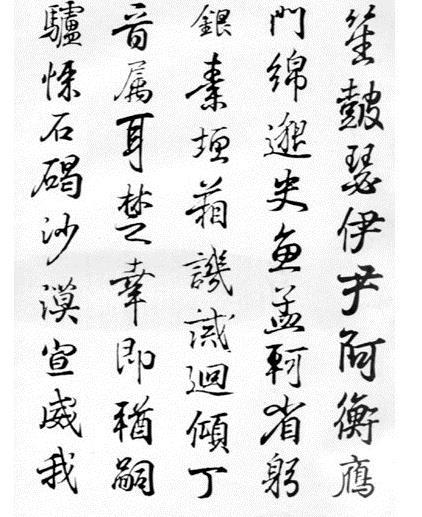 笙鼓瑟伊尹阿衡鴈
門綿邈史魚孟軻省躬
銀素垣譏誡迴傾丁
音属耳楚幸即輶嗣
驢悚石碣沙漠宣威我